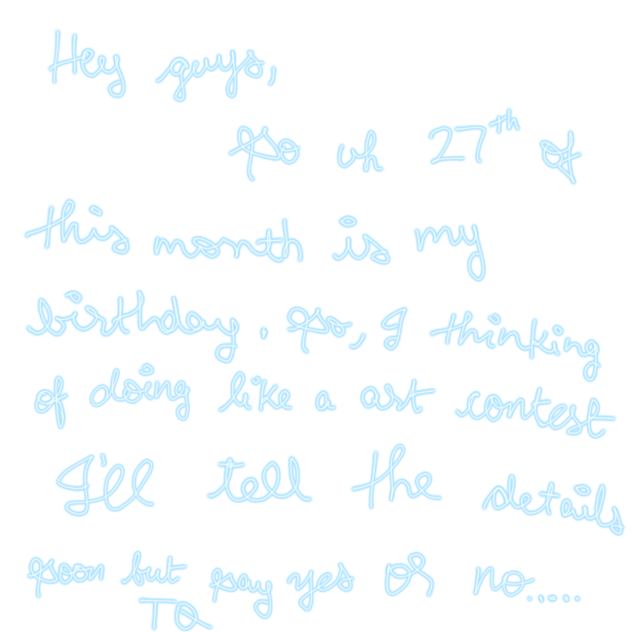 Hey guys,
So uh 27th of
this month is my
birthday. So, I thinking
of doing like a art contest
I'll tell the details
soon but say yes or no.....
TQ